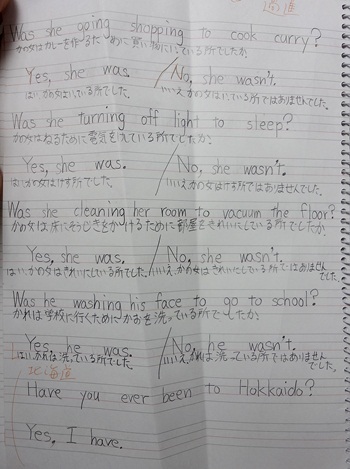 過通
Was she going shopping to cook curry?
かの女はカレーを作るために買い物にいっている所でしたか。
Yes, she was. / No, she wasn't.
はい、かの女はいっている所でした。 いいえ、かの女はいっている所ではありませんでした。
Was she turning off light to sleep?
かの女はねるために電気をけしている所でしたか。
Yes, she was. / No, she wasn't.
はい、かの女はけす所でした。 いいえ、かの女はけす所ではありませんでした。
Was she cleaning her room to vacuum the floor?
かの女は床にそうじきをかけるために部屋をきれいにしている所でしたか。
Yes, she was. / No, she wasn't.
はい、かの女はきれいにしている所でした。 いいえ、かの女はきれいにしている所ではありませんでした。
Was he washing his face to go to school?
かれは学校に行くためにかおを洗っている所でしたか。
Yes, he was. / No, he wasn't.
はい、かれは洗っている所でした。 いいえ、かれは洗っている所ではありませんでした。
北海道
Have you ever been to Hokkaido?
Yes, I have.